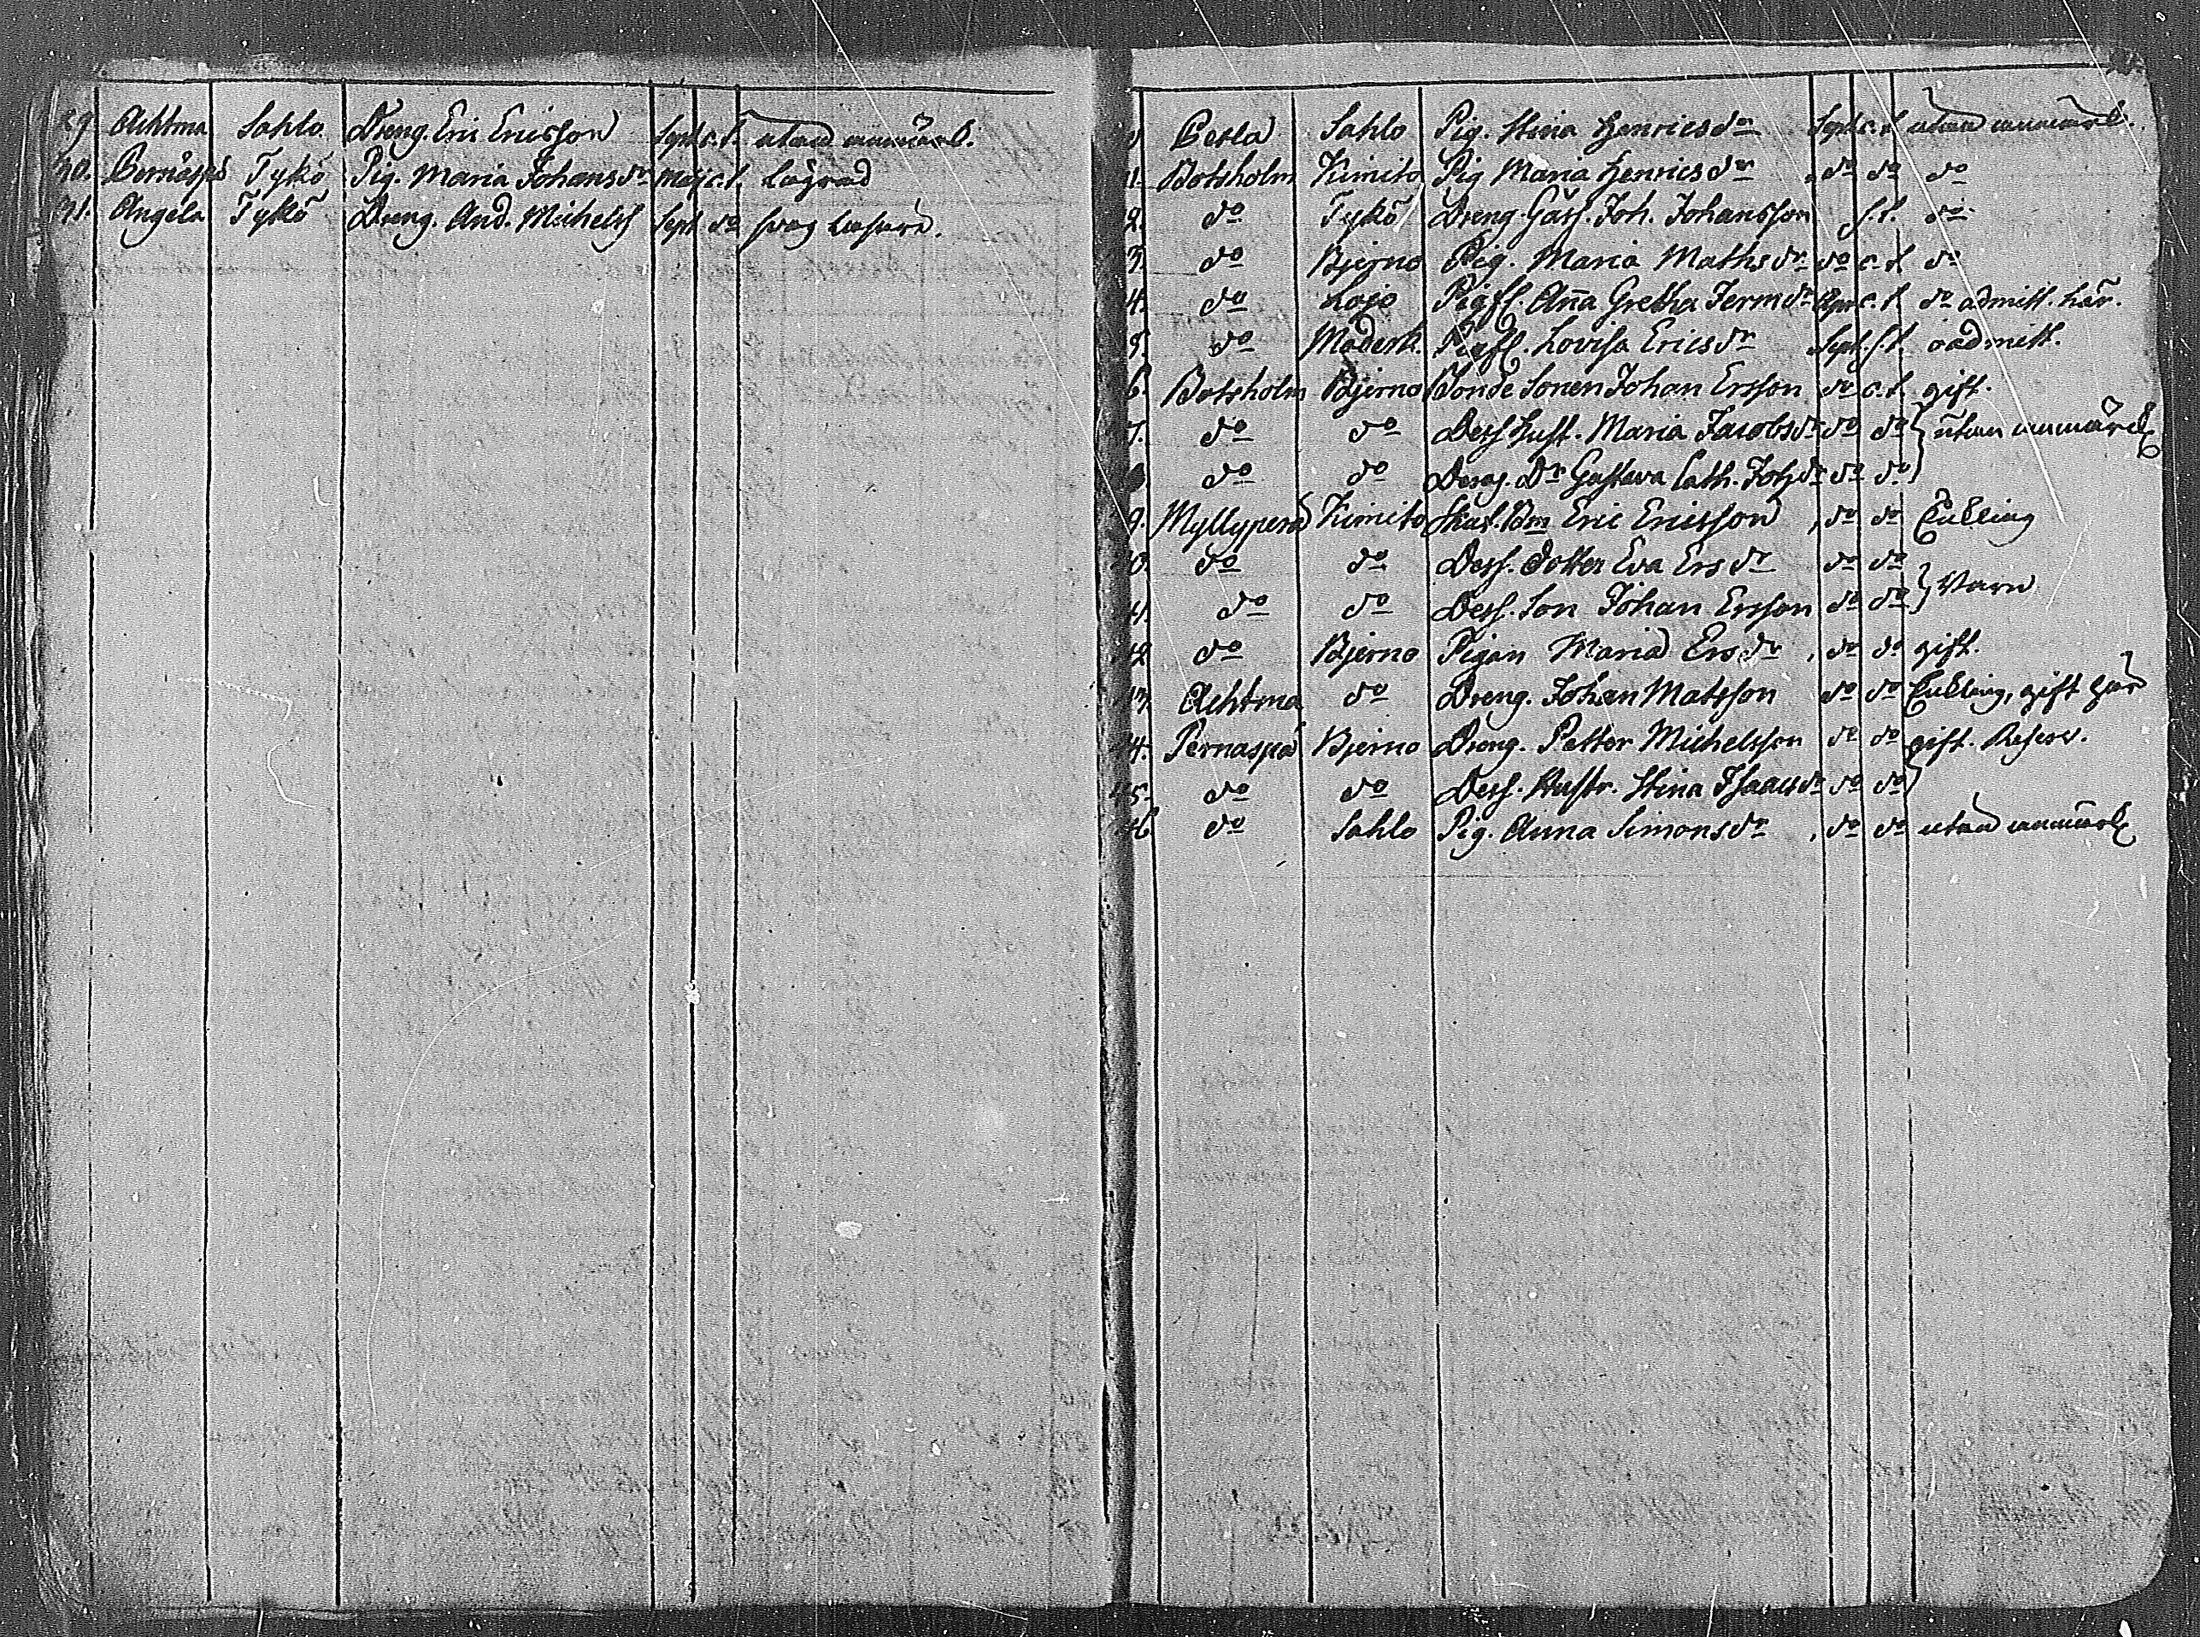 29. Achtma Sahlo Dreng. Eric Ericsson Sept. c.f. utan anmärk.
30. Pernäspä Tykö Pig. Maria Johansdr Maj c.f. Lägrad
31. Angela Tykö Dreng. And. Michelss Sept do svag läsare.
Perla Sahlo Pig. Stina Henricsdr Sept. c.f. utan anmärk.
Botsholm Kimito Pig Maria Henricsdr do do do
2. do Tykö Dreng. Goss. Joh. Johansson s.f. do
3. do Bjerno Pig. Maria Mathsdr do c.f. do
4. do Lojo Pigfl. Anna Gretha Jermdr c.f. do admitt. här.
5. do Moderk. Pigfl. Lovisa Ericsdr Sept. s.f. oadmitt.
6. Botsholm Bjerno Bonde Sonen Johan Ersson do c.f. gift.
7. do do Dess Hust. Maria Jacobsdr do do utan anmärk
do do Deras Dr Gustava Cath. Johdr do do
9. Myllyperä Kimito Eric Ericsson do do Enkling
0. do do Dess. Dotter Eva Ersdr do do
11. do do Dess. Son Johan Ersson do do Barn
12 do Bjerno Pigan Maria Ersdr do do gift.
13. Achtma do Dreng. Johan Matsson do do Enkling, gift här
14. Pernäspä Bjerno Dreng. Petter Michelsson do do gift. Reserv.
15. do do Dess. Hustr. Stina Isaacsdr do do
16 do Sahlo Pig. Anna Simonsdr do do utan anmärk